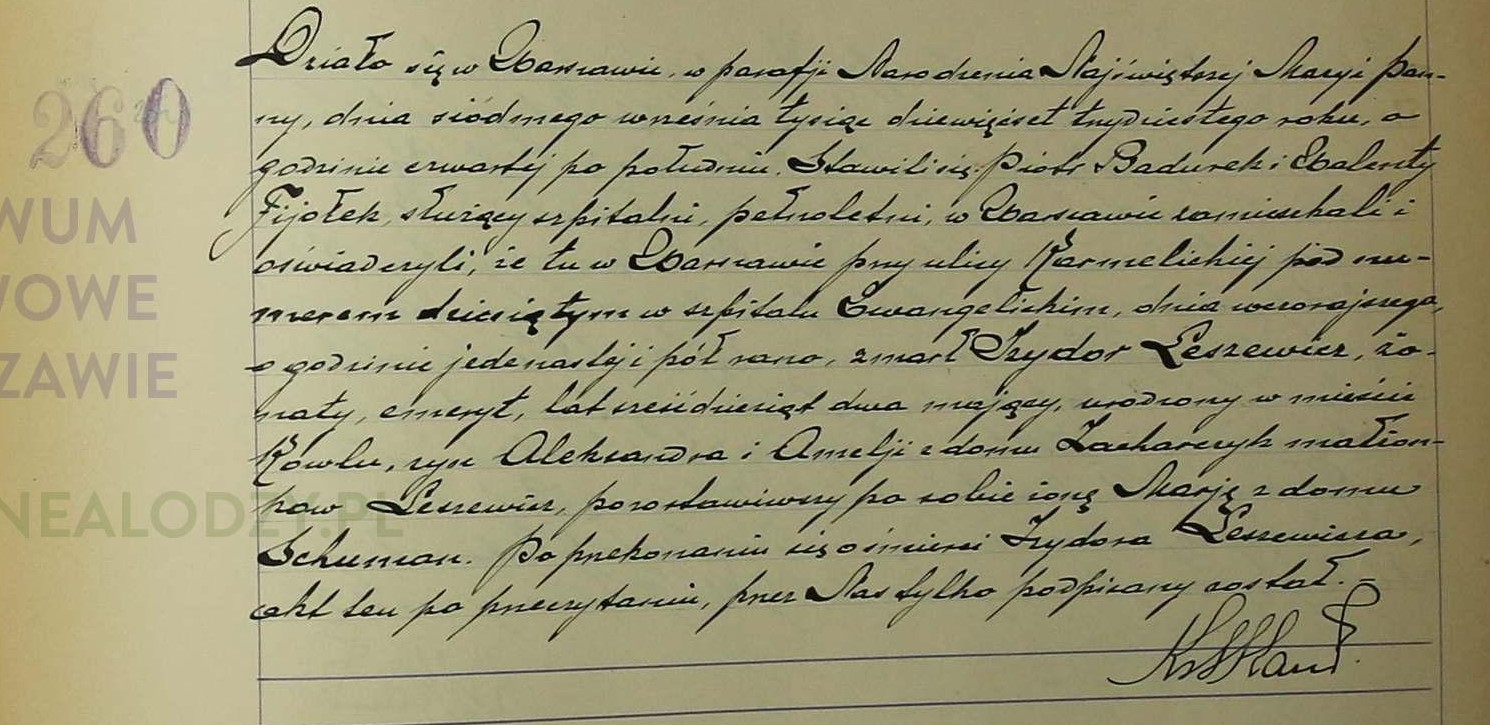 260
Działo się w Warszawie, w parafji Narodzenia Najświętszej Maryi Pan-
ny, dnia siódmego września tysiąc dziewięćset trzydziestego roku, o
godzinie czwartej po południu. Stawili się: Piotr Badurek i Walenty
Fijołek, służący szpitalni, pełnoletni, w Warszawie zamieszkali i
oświadczyli, że tu w Warszawie przy ulicy Karmelickiej pod nu-
merem dziesiątym w szpitalu Ewangelickim, dnia wczorajszego,
o godzinie jedenastej i pół rano, zmarł Izydor Leszewicz, żo-
naty, emeryt, lat sześćdziesiąt dwa mający, urodzony w mieście
Kowlu, syn Aleksandra i Amelji z domu Zacharczyk małżon-
ków Leszewicz, pozostawiwszy po sobie żonę Marję z domu
Schuman. Po przekonaniu się o śmierci Izydora Leszewicza,
akt ten po przeczytaniu, przez Nas tylko podpisany został.-
WUM
WOWE
ZAWIE
NEALODZY.PL